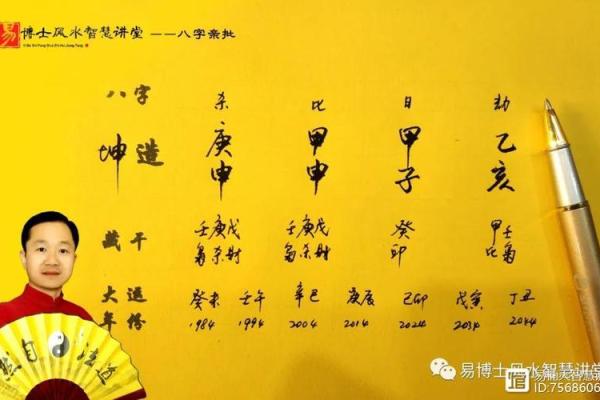 易 博士风水智慧讲堂 ——八字亲批
八字 杀 比 日 劫
坤造 庚申 甲申 甲子 乙亥
藏干 壬庚戊 壬庚戊 癸 甲壬
枭杀财 枭杀财 印 比枭
大运 癸未 壬午 辛巳 庚辰 己卯 戊寅 丁丑
年份 1984 1994 2004 2014 2024 2034 2044
易博士风水智慧讲堂
ID:7568606